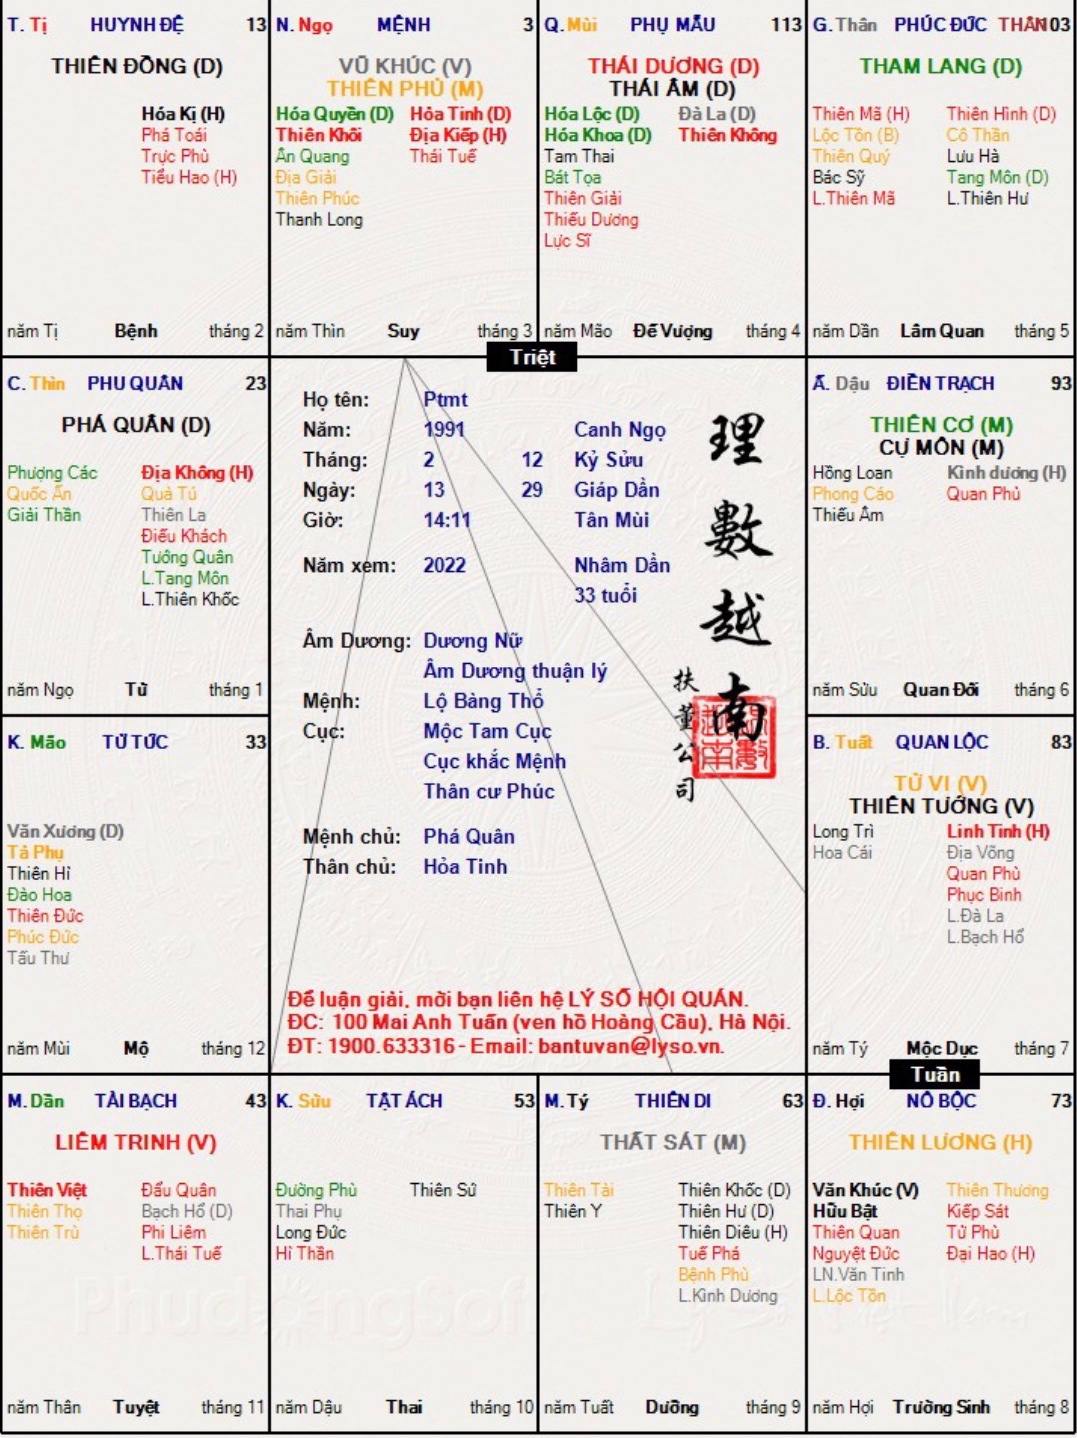 T. Tị HUYNH ĐỆ 13
THIÊN ĐỒNG (D)
Hóa Kị (H)
Phá Toái
Trực Phù
Tiểu Hao (H)
năm Tị Bệnh tháng 2
N. Ngọ MỆNH 3
VŨ KHÚC (V)
THIÊN PHỦ (M)
Hóa Quyền (D) Hỏa Tinh (D)
Thiên Khôi Địa Kiếp (H)
Ân Quang Thái Tuế
Địa Giải
Thiên Phúc
Thanh Long
năm Thìn Suy tháng 3
Q. Mùi PHỤ MẪU 113
THÁI DƯƠNG (D)
THÁI ÂM (D)
Hóa Lộc (D) Đà La (D)
Hóa Khoa (D) Thiên Không
Tam Thai
Bát Tọa
Thiên Giải
Thiếu Dương
Lực Sĩ
năm Mão Đế Vượng tháng 4
G. Thân PHÚC ĐỨC THÂN 103
THAM LANG (D)
Thiên Mã (H) Thiên Hình (D)
Lộc Tồn (B) Cô Thần
Thiên Quý Lưu Hà
Bác Sỹ Tang Môn (D)
L.Thiên Mã L.Thiên Hư
năm Dần Lâm Quan tháng 5
Triệt
C. Thìn PHU QUÂN 23
PHÁ QUÂN (D)
Phượng Các Địa Không (H)
Quốc Ấn Quả Tú
Giải Thần Thiên La
Điếu Khách
Tướng Quân
L.Tang Môn
L.Thiên Khốc
năm Ngọ Tử tháng 1
Họ tên: Ptmt
Năm: 1991 Canh Ngọ
Tháng: 2 12 Kỷ Sửu
Ngày: 13 29 Giáp Dần
Giờ: 14:11 Tân Mùi
Năm xem: 2022 Nhâm Dần
33 tuổi
Âm Dương: Dương Nữ
Âm Dương thuận lý
Mệnh: Lộ Bàng Thổ
Cục: Mộc Tam Cục
Cục khắc Mệnh
Thân cư Phúc
Mệnh chủ: Phá Quân
Thân chủ: Hỏa Tinh
理數越南
扶董公司
Để luận giải, mời bạn liên hệ LÝ SỐ HỘI QUÁN.
ĐC: 100 Mai Anh Tuấn (ven hồ Hoàng Cầu), Hà Nội.
ĐT: 1900.633316 - Email: bantuvan@lyso.vn.
Ấ. Dậu ĐIỀN TRẠCH 93
THIÊN CƠ (M)
CỰ MÔN (M)
Hồng Loan Kình dương (H)
Phong Cáo Quan Phủ
Thiếu Âm
năm Sửu Quan Đới tháng 6
K. Mão TỬ TỨC 33
Văn Xương (D)
Tả Phụ
Thiên Hỉ
Đào Hoa
Thiên Đức
Phúc Đức
Tấu Thư
năm Mùi Mộ tháng 12
B. Tuất QUAN LỘC 83
TỬ VI (V)
THIÊN TƯỚNG (V)
Long Trì Linh Tinh (H)
Hoa Cái Địa Võng
Quan Phù
Phục Binh
L.Đà La
L.Bạch Hổ
năm Tý Mộc Dục tháng 7
Tuần
M. Dần TÀI BẠCH 43
LIÊM TRINH (V)
Thiên Việt Đẩu Quân
Thiên Thọ Bạch Hổ (D)
Thiên Trù Phi Liêm
L.Thái Tuế
năm Thân Tuyệt tháng 11
K. Sửu TẬT ÁCH 53
Đường Phù Thiên Sứ
Thai Phụ
Long Đức
Hỉ Thần
năm Dậu Thai tháng 10
M. Tý THIÊN DI 63
THẤT SÁT (M)
Thiên Tài Thiên Khốc (D)
Thiên Y Thiên Hư (D)
Thiên Diêu (H)
Tuế Phá
Bệnh Phù
L.Kình Dương
năm Tuất Dưỡng tháng 9
Đ. Hợi NÔ BỘC 73
THIÊN LƯƠNG (H)
Văn Khúc (V) Thiên Thương
Hữu Bật Kiếp Sát
Thiên Quan Tử Phù
Nguyệt Đức Đại Hao (H)
LN.Văn Tinh
L.Lộc Tồn
năm Hợi Trường Sinh tháng 8